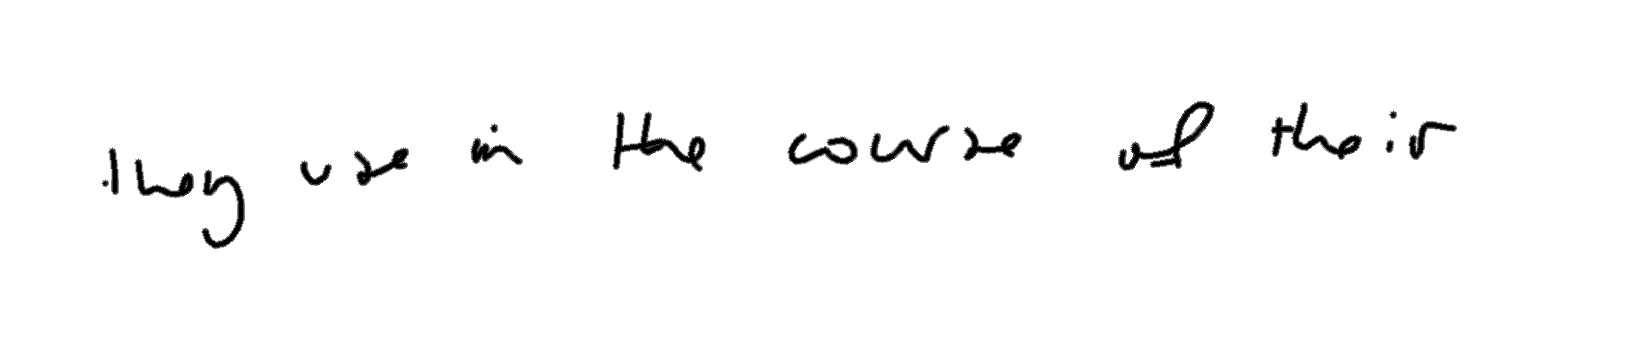 they use in the course of their